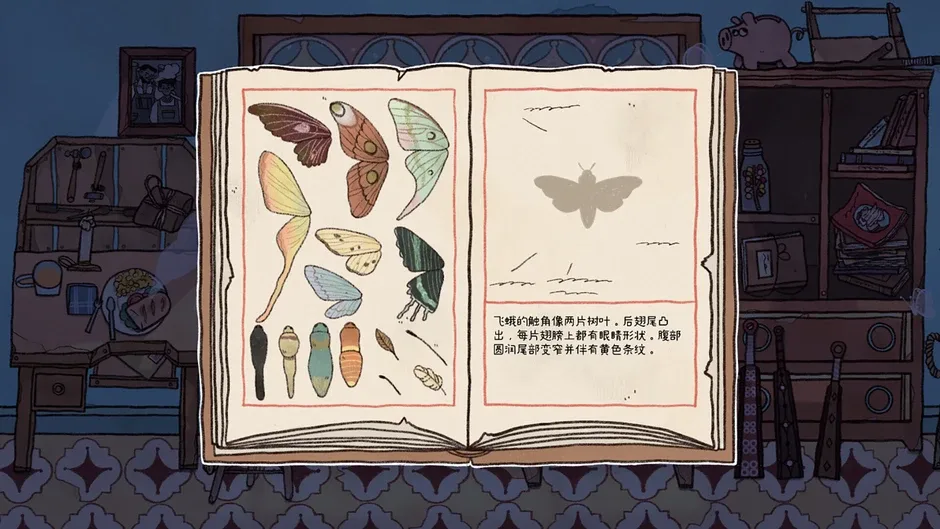 飞蛾的触角像两片树叶。后翅尾凸
出,每片翅膀上都有眼睛形状。腹部
圆润尾部变窄并伴有黄色条纹。